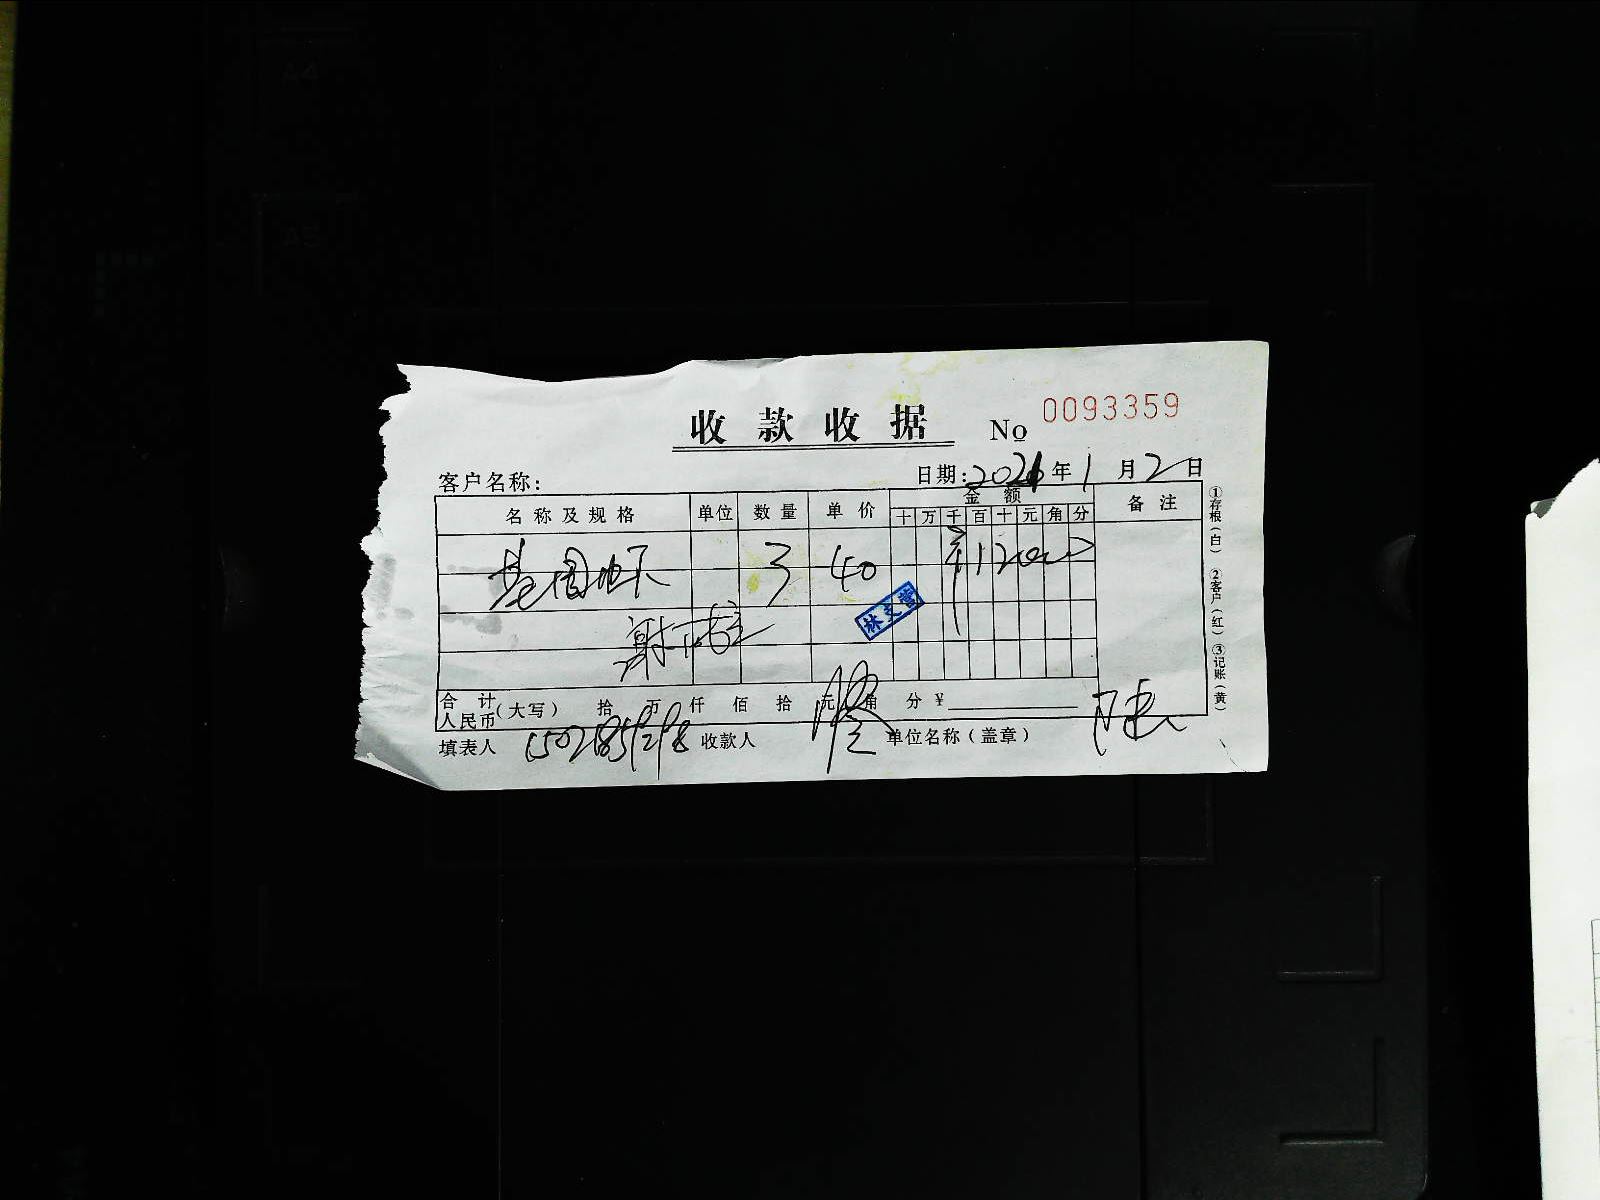 收款收据 № 0093359
客户名称: 日期: 2021 年 1 月 2 日
名称及规格 单位 数量 单价 金额 备注
十 万 千 百 十 元 角 分
3 40 12000
林支营
合计人民币(大写) 拾 万 仟 佰 拾 元 角 分 ¥
填表人 收款人 单位名称(盖章)
①存根(白) ②客户(红) ③记账(黄)
A4
A5